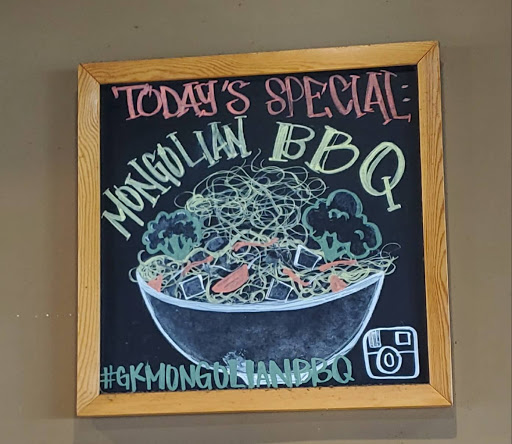 TODAY'S SPECIAL:
MONGOLIAN BBQ
#GKMONGOLIANBBQ